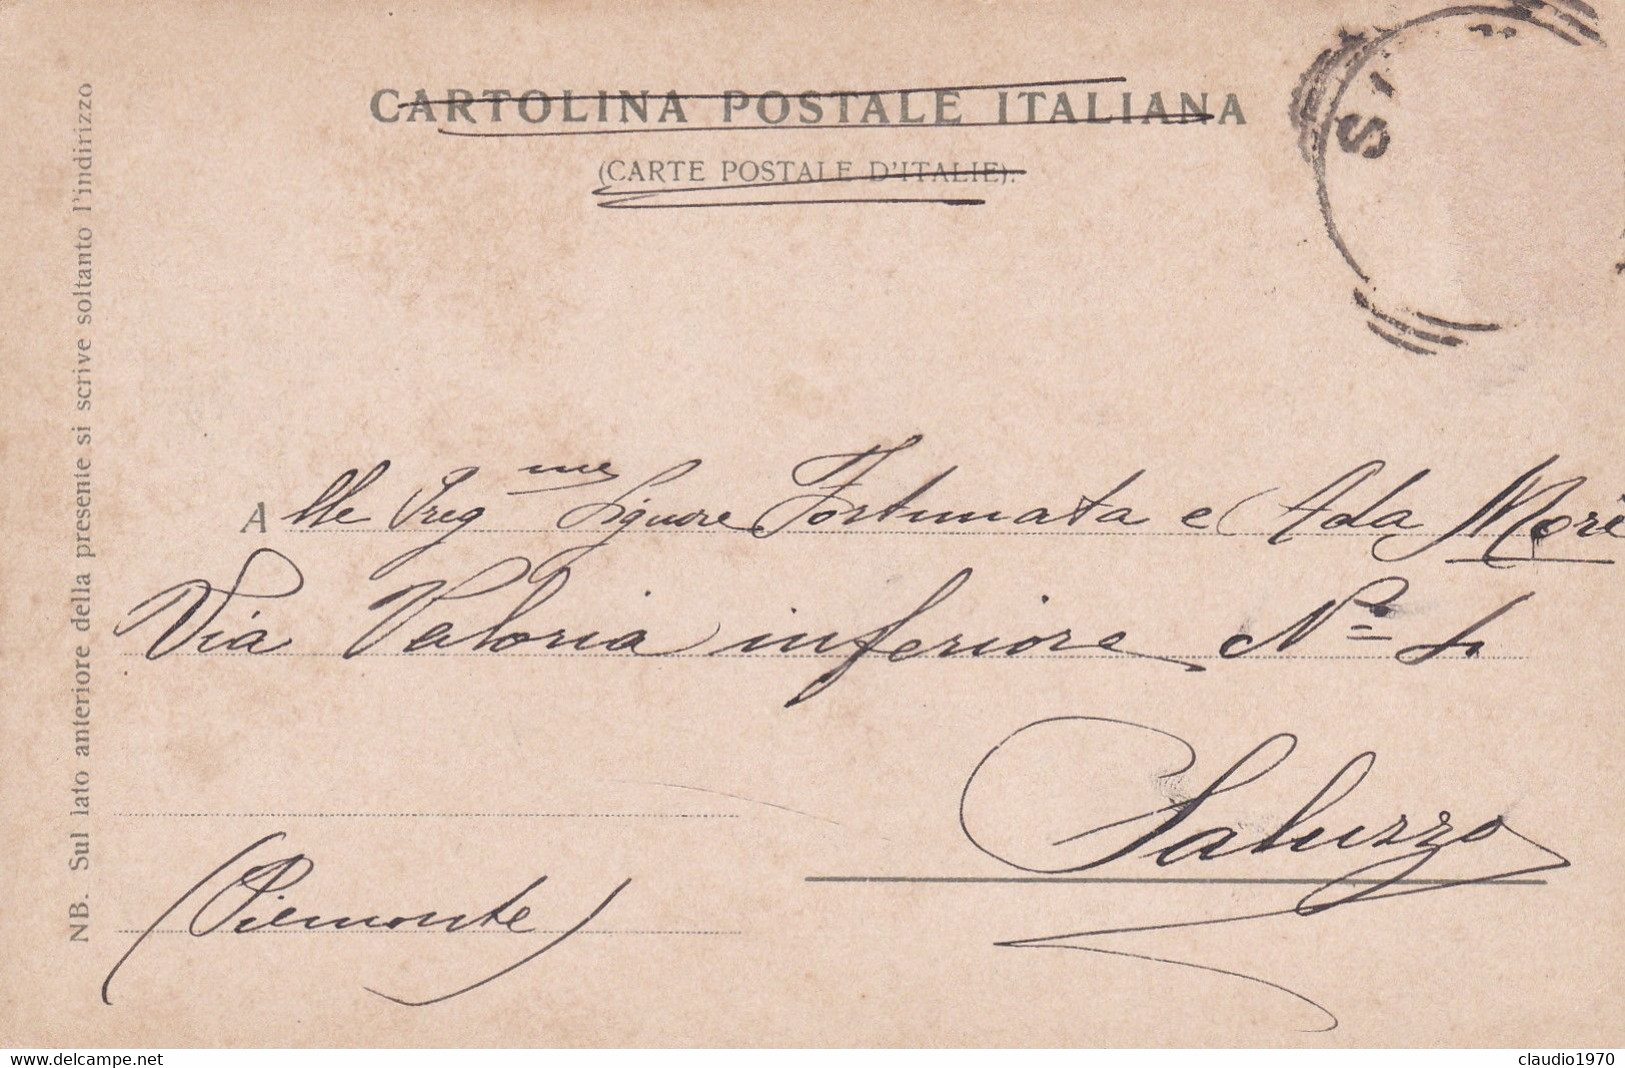 CARTOLINA POSTALE ITALIANA
(CARTE POSTALE D'ITALIE).
NB. Sul lato anteriore della presente si scrive soltanto l'indirizzo
Alle Preg.me Signore Fortunata e Ada Morè
Via Valoria inferiore N° 4
Saluzzo
(Piemonte)
www.delcampe.net
claudio1970